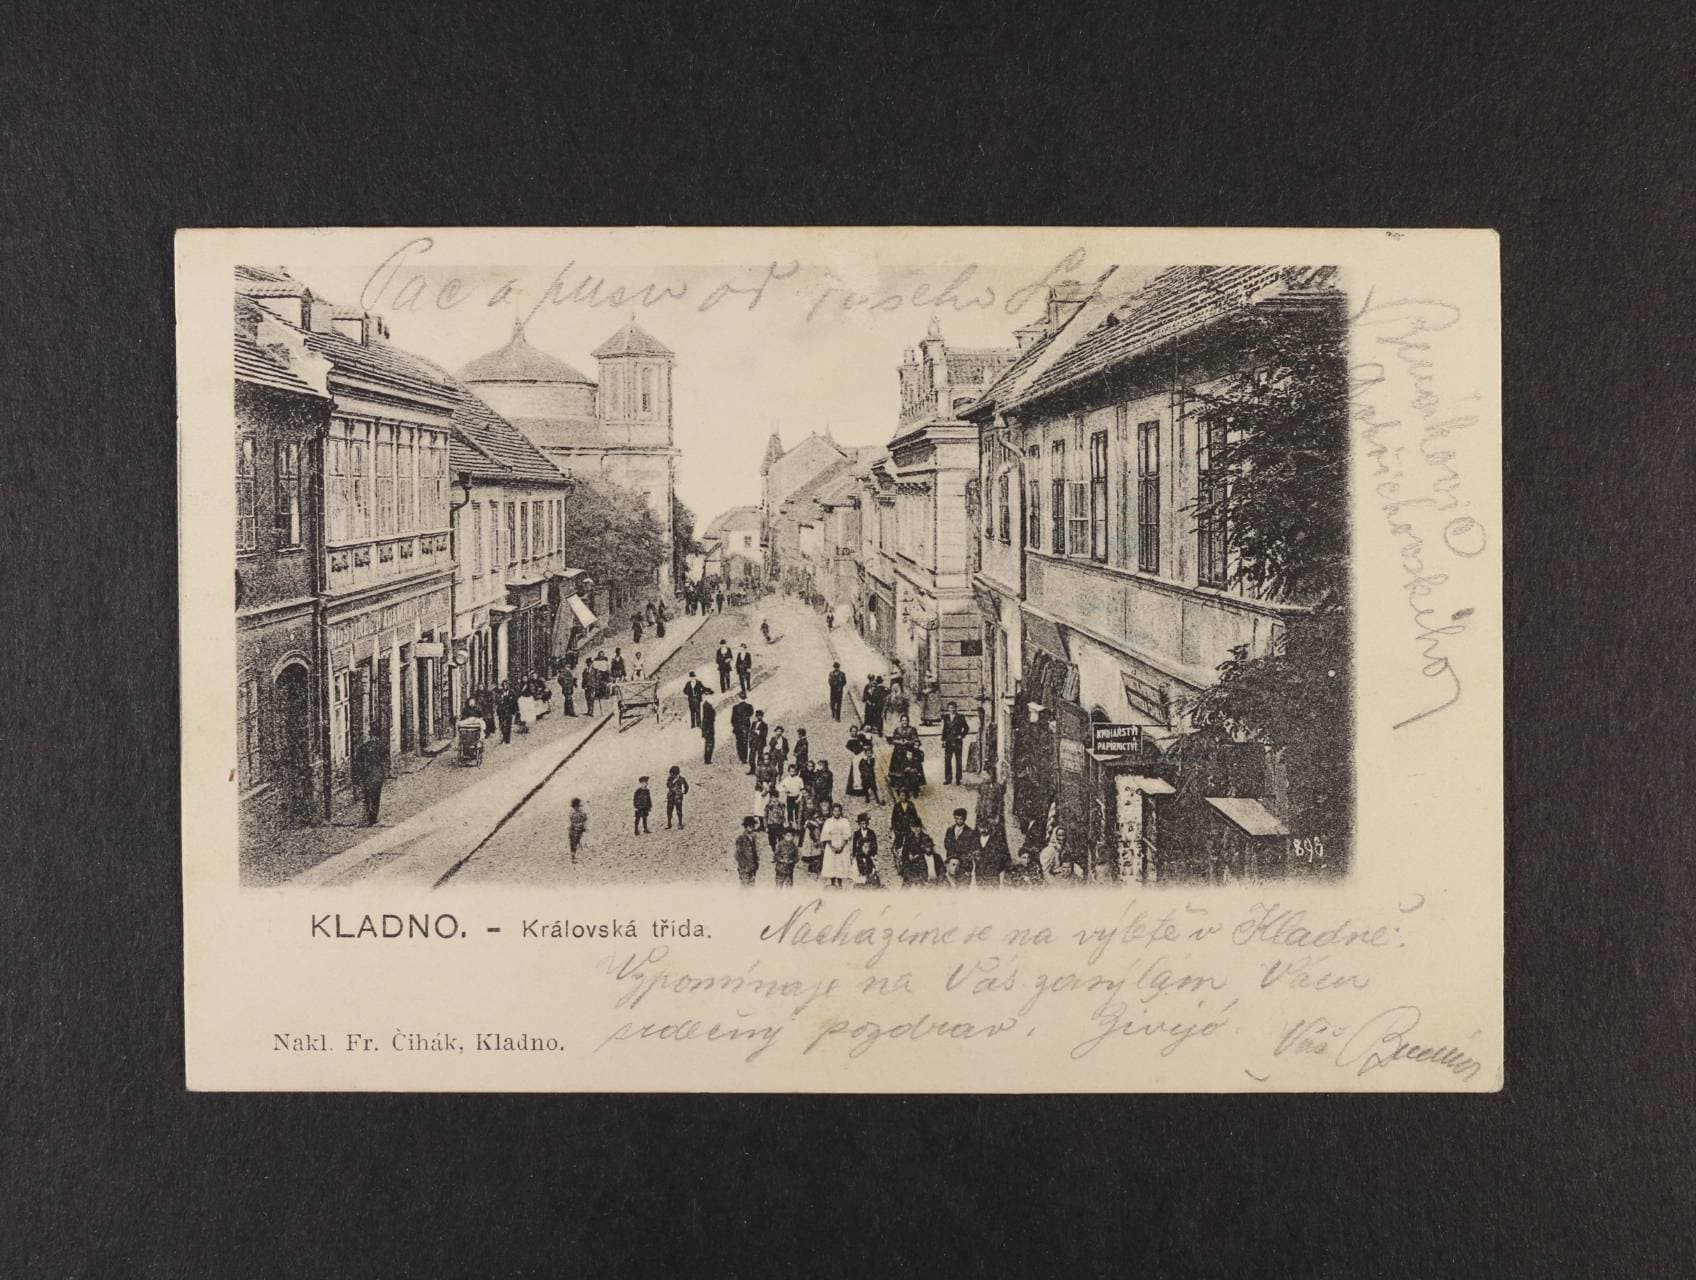 Pac a pusu od
KNIHAŘSTVÍ
PAPÍRNICTVÍ
895
KLADNO. - Královská třída.
Nacházíme se na výletě v Kladně.
Vzpomínaje na Vás zasýlám Vám
srdečný pozdrav. Živijó.
Váš
Nakl. Fr. Čihák, Kladno.